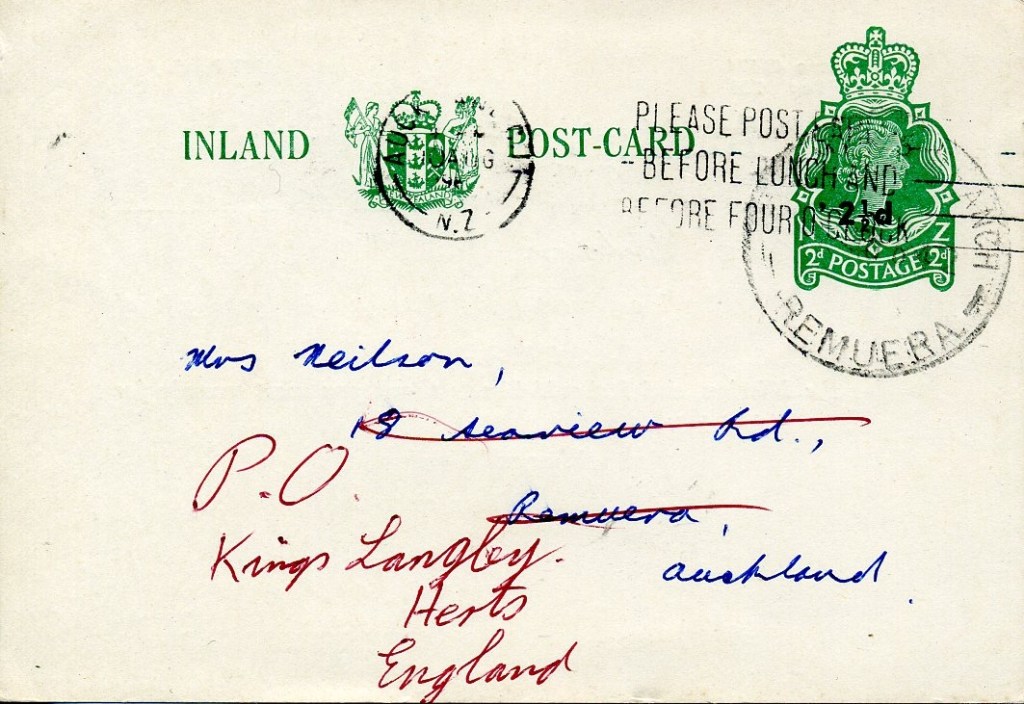 INLAND POST-CARD
N.Z
PLEASE POST
BEFORE LUNCH AND
BEFORE FOUR O'CLOCK
2½d
N Z
2d POSTAGE 2d
REMUERA
Mrs Neilson,
18 Seaview Rd.,
Remuera,
Auckland.
P.O.
Kings Langley.
Herts
England